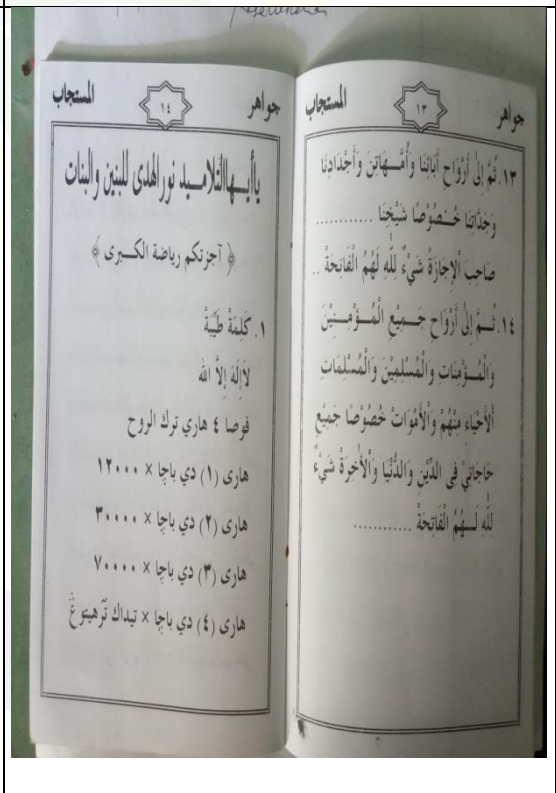 جواهر ١٣ المستجاب
١٣. ثُمَّ إِلَى أَرْوَاحِ آبَائِنَا وَأُمَّهَاتِنَ وَأَجْدَادِنَا
وَجَدَّاتِنَا خُصُوْصًا شَيْخِنَا ............
صَاحِبَ الْإِجَازَةْ شَيْءٌ لِلّٰهِ لَهُمُ الْفَاتِحَةْ ..
١٤. ثُمَّ إِلَى أَرْوَاحِ جَمِيْعِ الْمُؤْمِنِيْنَ
وَالْمُؤْمِنَاتِ وَالْمُسْلِمِيْنَ وَالْمُسْلِمَاتِ
اَلْأَحْيَاءِ مِنْهُمْ وَالْأَمْوَاتْ خُصُوْصًا جَمِيْعِ
حَاجَاتِيْ فِى الدِّيْنِ وَالدُّنْيَا وَالْأَخِرَةْ شَيْءٌ
لِلّٰهِ لَهُمُ الْفَاتِحَةْ ............
جواهر ١٤ المستجاب
ياأيهاالتلاميد نورالهدى للبنين والبنات
﴿ آجزتكم رياضة الكبرى ﴾
١. كَلِمَةْ طَيِّبَةْ
لَاإِلَهَ إِلاَّ الله
فوصا ٤ هاري ترك الروح
هارى (١) دي باچا × ١٢٠٠٠
هارى (٢) دي باچا × ٣٠٠٠٠
هارى (٣) دي باچا × ٧٠٠٠٠
هارى (٤) دي باچا × تيداك ترهيتوڠ